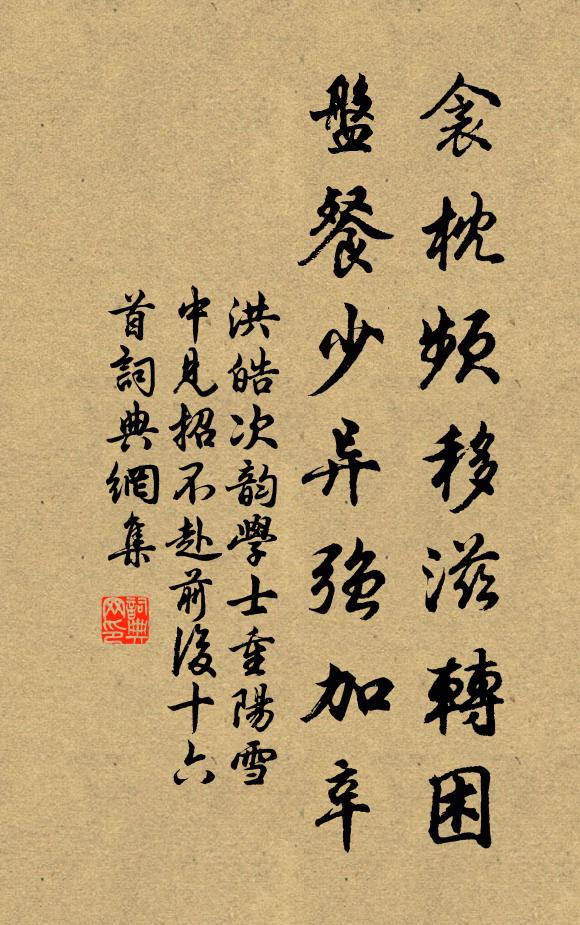 衾枕频移滋轉困
盤餐少异強加辛
洪皓次韵學士重陽雪
中見招不赴前後十六
首詞典網集
詞典
网印